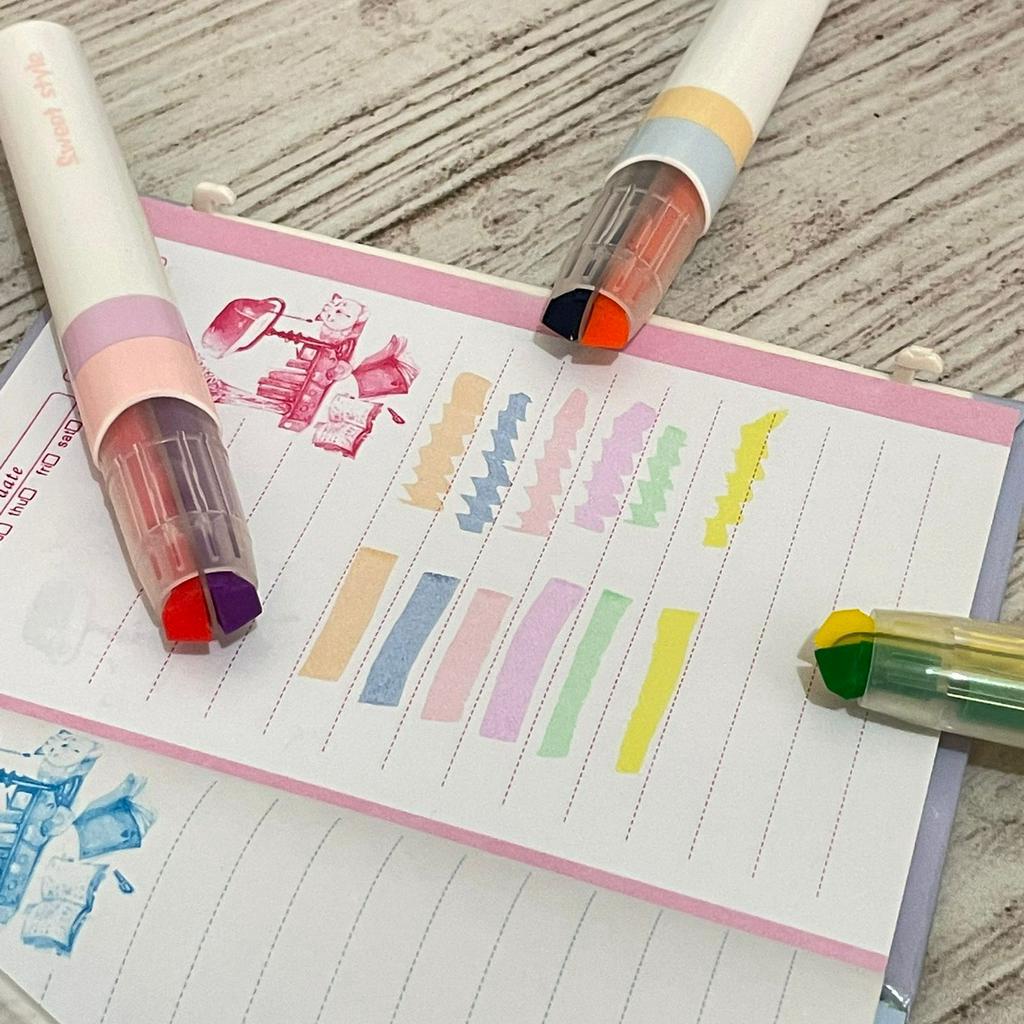 Sweet style
date
thu
fri
sat